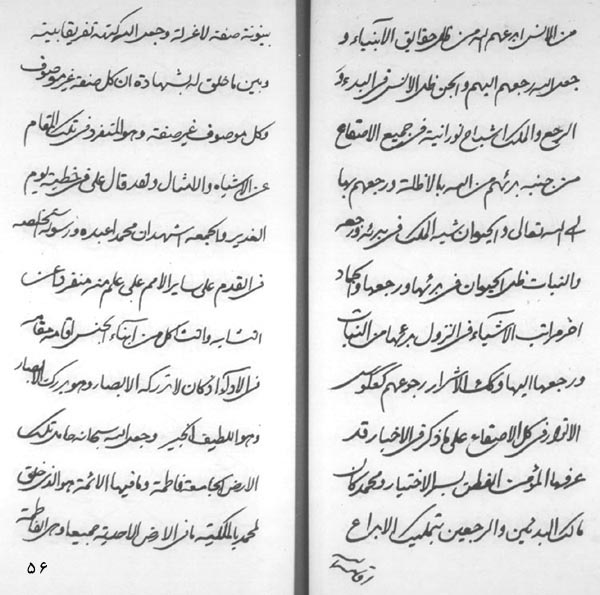 من الانس ابرئهم الله من ظل حقايق الانبياء و
جعل الله رجعهم اليهم والجن ظل الانس فى البدء و
الرجع والملك اشباح نورانية فى جميع الاصقاع
من جنبه برئهم من الله بالاظلة ورجعهم بها
الى الله تعالى والحيوان شبه الملك فى برئه ورجعه
والنبات ظل الحيوان فى برئها ورجعها والجماد
اخر مراتب الاشياء فى النزول برئها من النبات
ورجعها اليها وكذلك الاشرار رجوعهم كعكوس
الانوار فى كل الاصقاع على ما ذكر فى الاخبار قد
عرفها المؤمن الفطن بسر الاختيار ومحمد كان
مالك البدئين والرجعين بتمليك الابداع
بينونة صفة لا عزلة وجعل الله كنهه تفريقا بينه
وبين ما خلق له بشهادة ان كل صفة غير موصوف
وكل موصوف غير صفته وهو المتفرد فى تلك المقام
عن الاشباه والامثال ولقد قال على فى خطبة يوم
الغدير والجمعه اشهد ان محمدا عبده ورسوله استخلصه
فى القدم على ساير الامم على علم منه منفردا عن
التشابه والتشاكل من ابناء الجنس اقامه مقامه
فى الاداء اذ كان لا تدركه الابصار وهو يدرك الابصار
وهو اللطيف الخبير وجعل الله سبحانه حامل تلك
الارض الجامعة فاطمة وما فيها الائمة هو الذى خلق
لمحمد بالملكية ما فى الارض الاحدية جميعا وهى الفاطمة
۵۶